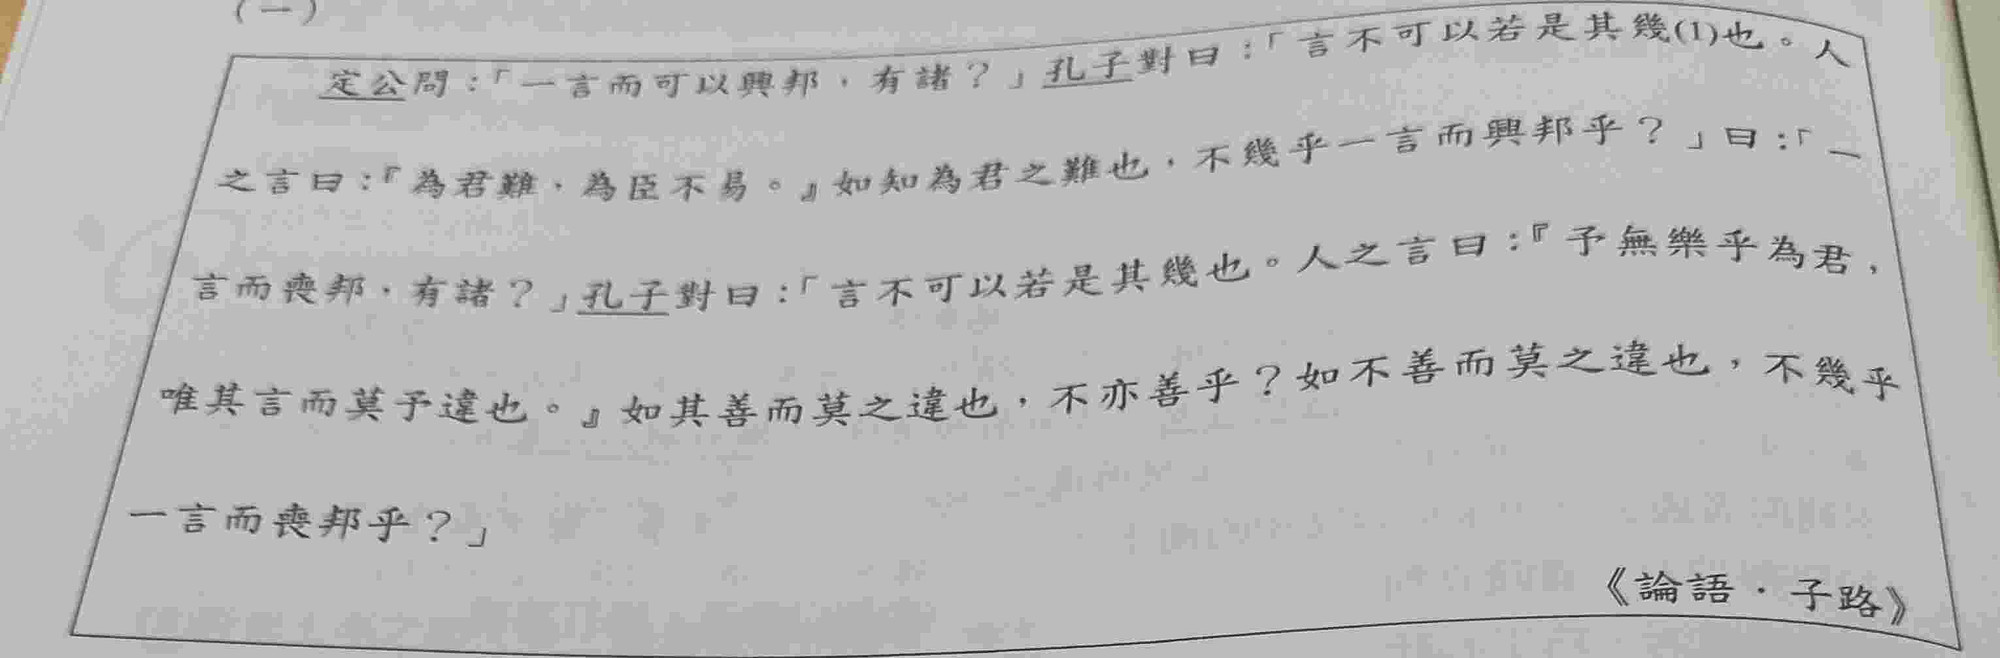 （一）
定公問：「一言而可以興邦，有諸？」孔子對曰：「言不可以若是其幾(1)也。人
之言曰：『為君難，為臣不易。』如知為君之難也，不幾乎一言而興邦乎？」曰：「一
言而喪邦，有諸？」孔子對曰：「言不可以若是其幾也。人之言曰：『予無樂乎為君，
唯其言而莫予違也。』如其善而莫之違也，不亦善乎？如不善而莫之違也，不幾乎
一言而喪邦乎？」
《論語．子路》